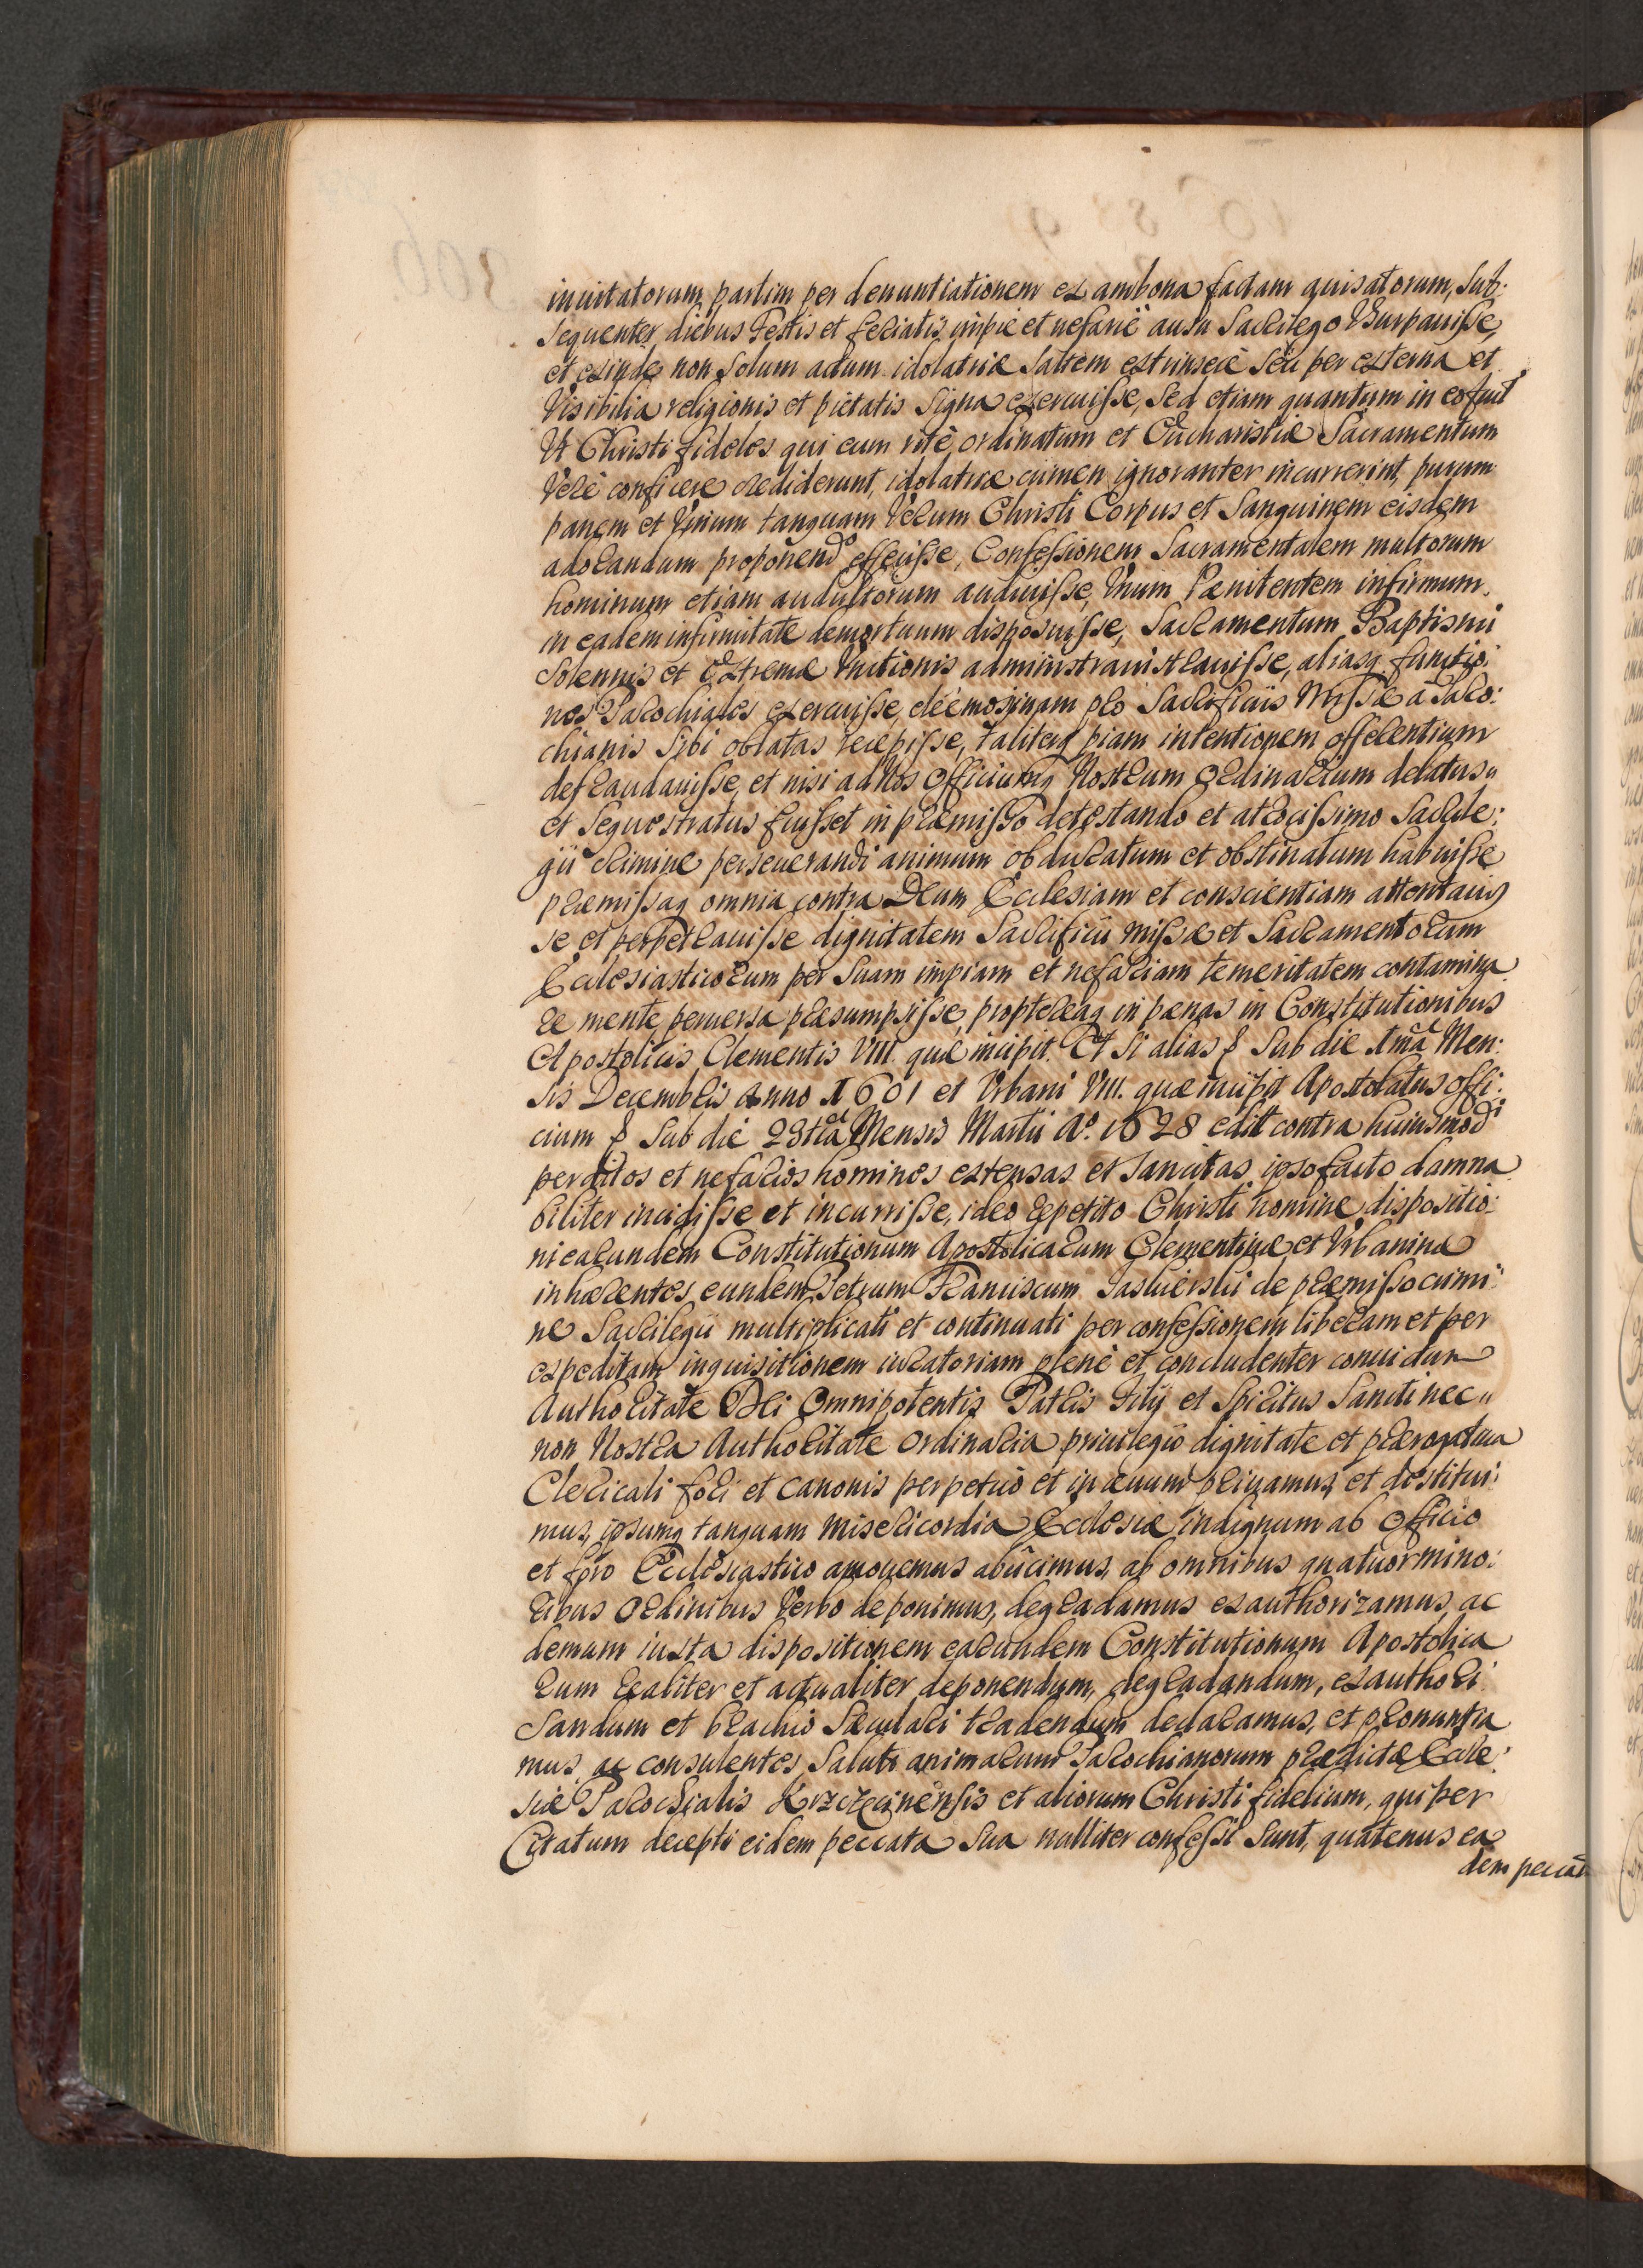 inuitatorum, partim per denuntiationem ex ambona factam auisatorum, Sub:
sequenter diebus Festis et feriatis impie et nefarie ausu Sacrilego Vsurpauisse,
et exinde non Solum actum idolatriæ Saltem extrinsece Seu per externa et
Visibilia religionis et pietatis Signa exercuisse, Sed etiam quantum in eo fuit
Vt Christi fideles qui eum ritè ordinatum et Eucharistiæ Sacramentum
Verè conficere crediderunt, idolatriæ crimen ignoranter incurrerint, purum
panem et Vinum tanquam Verum Christi Corpus et Sanguinem eisdem
adorandum proponendo effecisse, Confessionem Sacramentalem multorum
hominum etiam audultorum audiuisse, Vnum Pænitentem infirmum
in eadem infirmitate demortuum disposuisse, Sacramentum Baptismi
Solennis et Extremæ Vnctionis administrauisse, aliasq functio:
nes Parochiales exercuisse, eleemosynam pro Sacrificiis Missæ a Paro:
chianis Sibi oblatas recepisse, taliterq piam intentionem offerentium
defraudauisse, et nisi ad Nos Officiumq Nostrum Ordinarium delatus
et Sequestratus fuisset in præmisso detestando et atrocissimo Sacrile:
gii crimine perseuerandi animum obduratum et obstinatum habuisse
præmissaq omnia contra Deum Ecclesiam et conscientiam attentauis
se et perpetrauisse dignitatem Sacrificii missæ et Sacramentorum
Ecclesiasticorum per Suam impiam et nefariam temeritatem contamina
re mente peruersa præsumpsisse, propterëaq in pænas in Constitutionibus
Apostolicis Clementis VIII. quæ incipit Et Si alias & Sub die 1ma Men:
sis Decembris Anno 1601 et Vrbani VIII. quæ incipit Apostolatus offi:
cium & Sub die 23tia Mensis Martii Ao. 1628 edit contra huiusmodi
perditos et nefarios homines extensas et Sancitas ipso facto damna
biliter incidisse et incurrisse, ideo repetito Christi nomine dispositio:
ni earundem Constitutionum Apostolicarum Clementinæ et Vrbaninæ
inhærentes, eundem Petrum Franciscum de præmisso crimi:
ne Sacrilegii multiplicati et continuati per confessionem liberam et per
expeditam inquisitionem iuratoriam plenè et concludenter conuictum
Authoritate Dei Omnipotentis Patris Filij et Spiritus Sancti nec
non Nostra Authoritate Ordinaria priuilegio dignitate et prærogatiua
Clericali fori et Canonis perpetuò et in æuum priuamus et destitui:
mus, ipsumq tanquam misericordia Ecclesiæ indignum ab Officio
et foro Ecclesiastico amouemus abiicimus, ab omnibus quatuor mino:
ribus Ordinibus Verbo deponimus, degradamus exauthorizamus, ac
demum iuxta dispositionem earundem Constitutionum Apostolica
rum realiter et actualiter deponendum, degradandum, exauthori:
Sandum et brachio Sæculari tradendum declaramus, et pronuntia
mus, ac consulentes Saluti animarum Parochianorum prædictæ Eccle:
siæ Parochialis Krzczecinensis et aliorum Christi fidelium, qui per
Citatum decepti eidem peccata Sua nulliter confessi Sunt, quatenus ea
dem peccat